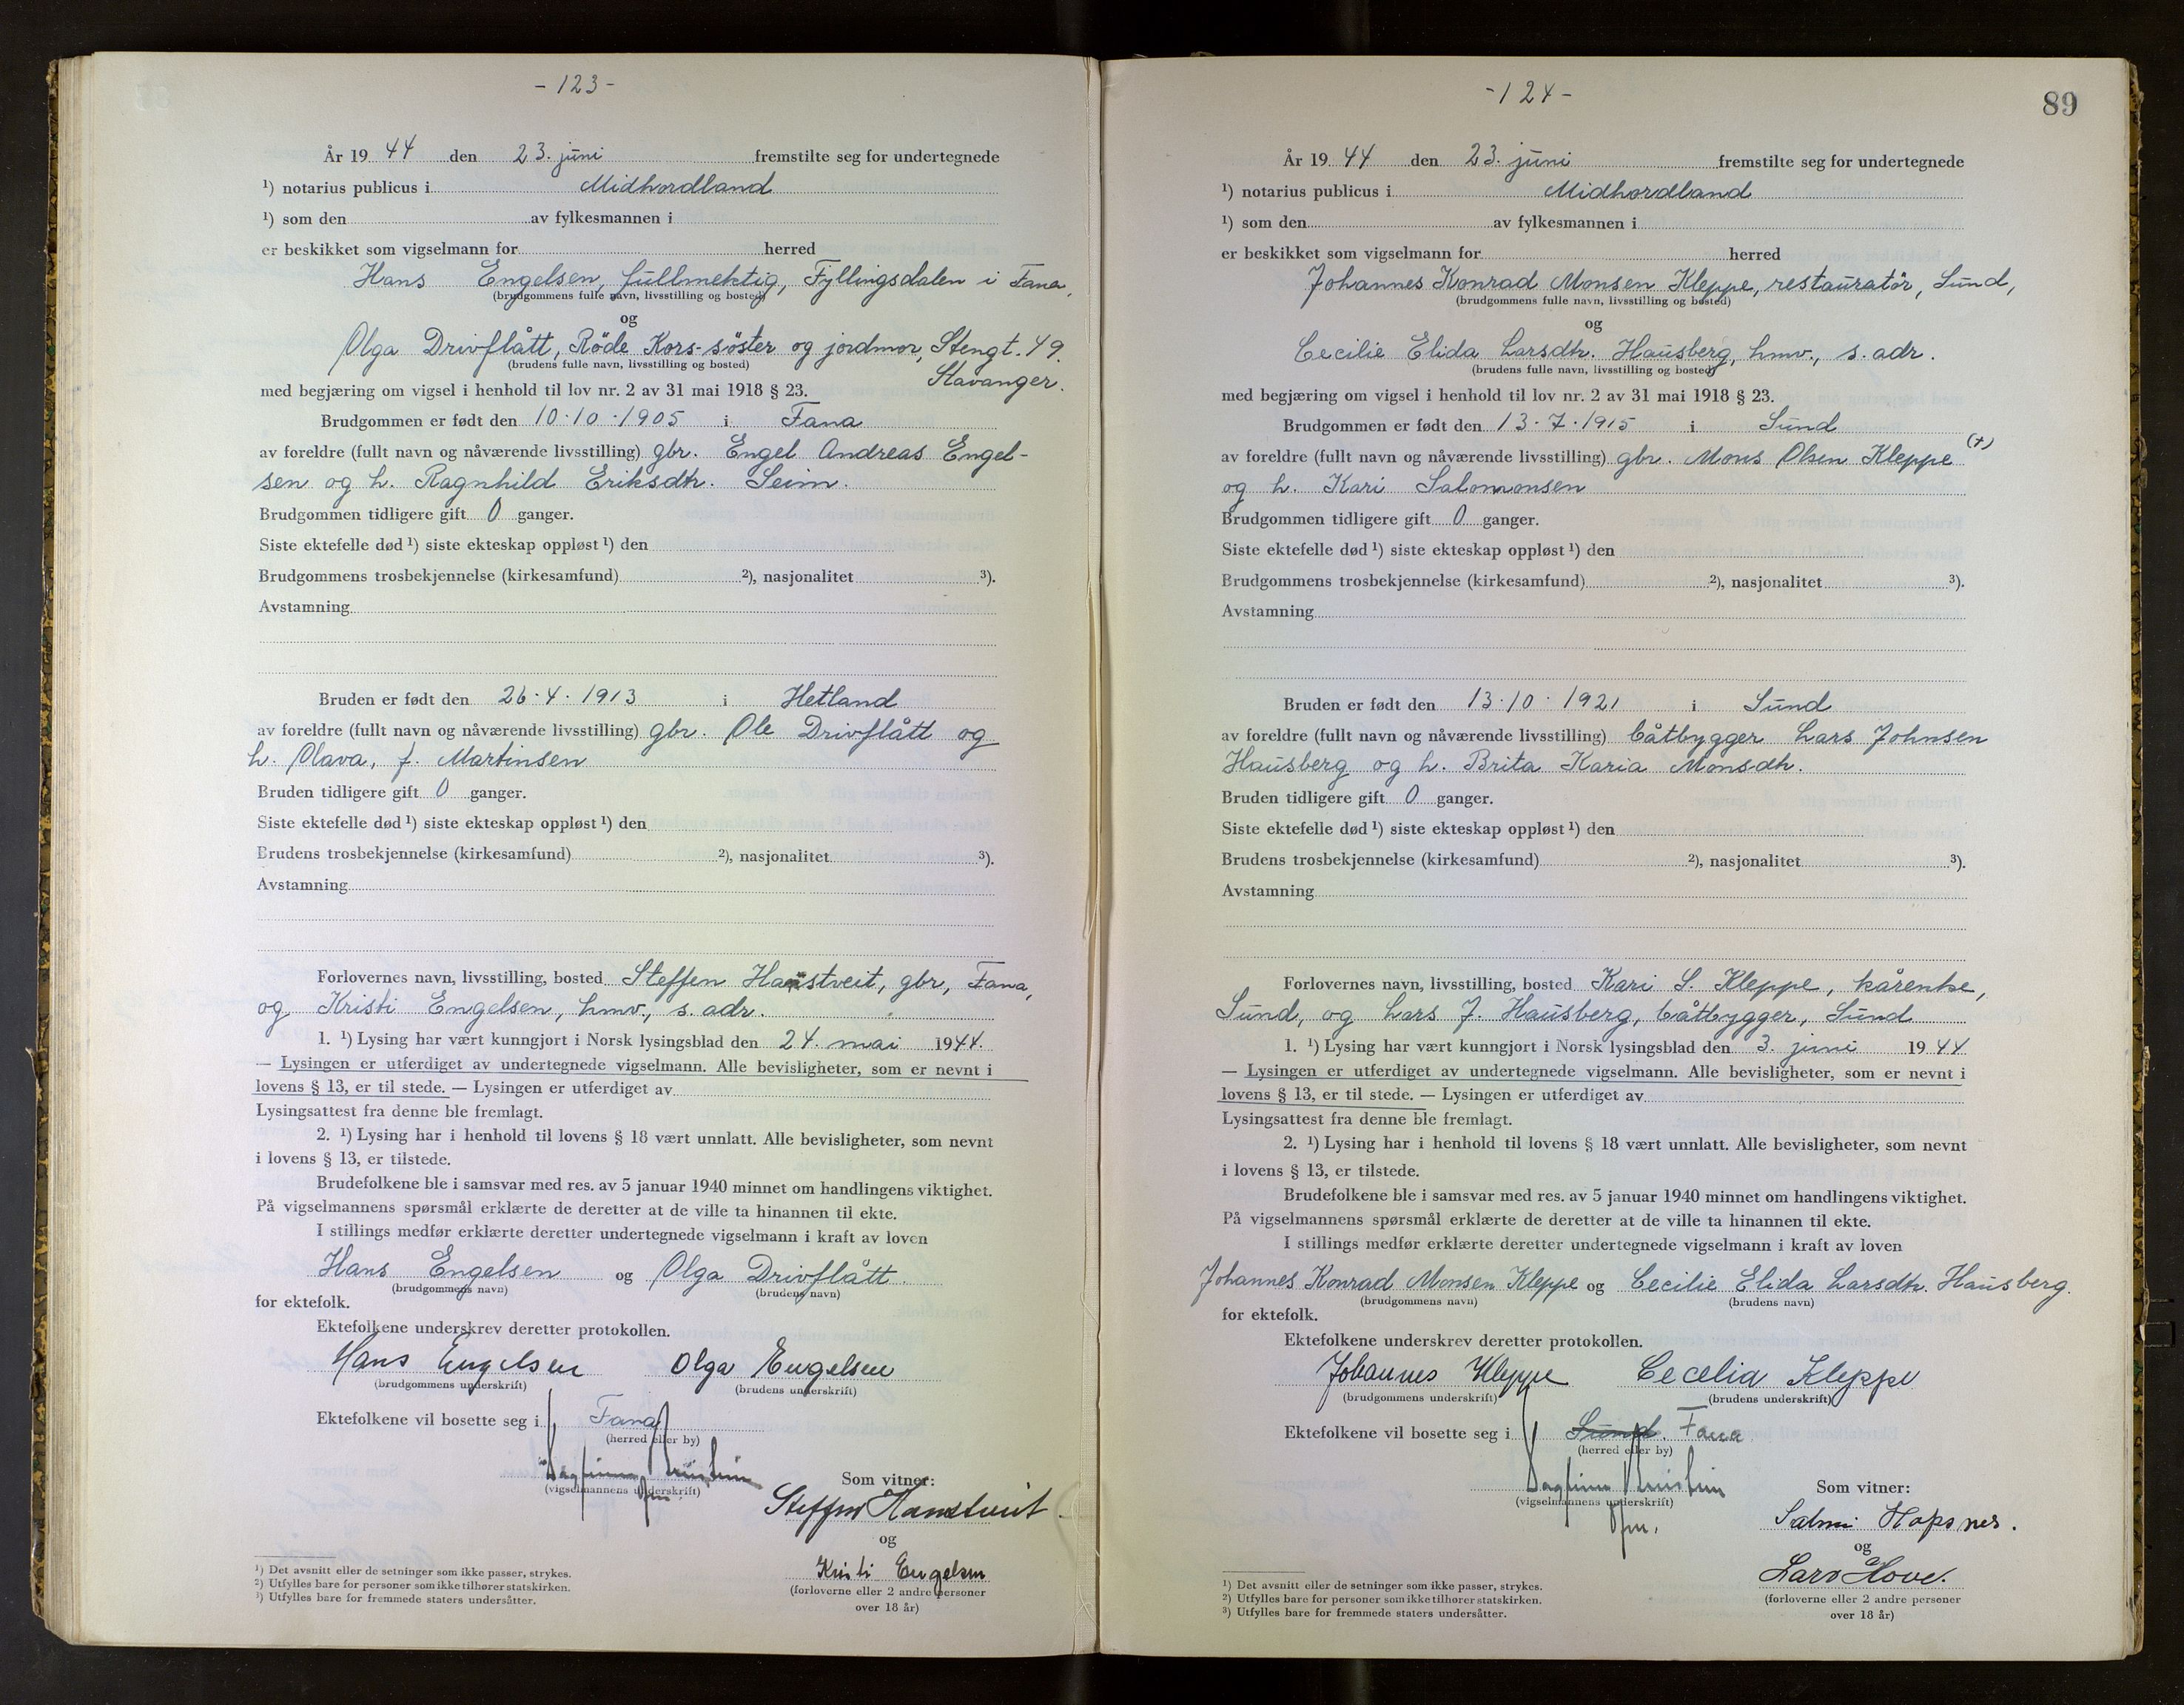 - 123 -
År 19 44 den 23. juni fremstilte seg for undertegnede
¹) notarius publicus i Midhordland
¹) som den av fylkesmannen i
er beskikket som vigselmann for herred
Hans Engelsen, fullmektig, Fyllingsdalen i Fana,
(brudgommens fulle navn, livsstilling og bosted)
og
Olga Drivflått, Røde Kors-søster og jordmor, Stengt. 49.
(brudens fulle navn, livsstilling og bosted)
Stavanger.
med begjæring om vigsel i henhold til lov nr. 2 av 31 mai 1918 § 23.
Brudgommen er født den 10.10.1905 i Fana
av foreldre (fullt navn og nåværende livsstilling) gbr. Engel Andreas Engel-
sen og h. Ragnhild Eriksdtr. Seim.
Brudgommen tidligere gift 0 ganger.
Siste ektefelle død ¹) siste ekteskap oppløst ¹) den
Brudgommens trosbekjennelse (kirkesamfund) ²), nasjonalitet ³).
Avstamning
Bruden er født den 26.4.1913 i Hetland
av foreldre (fullt navn og nåværende livsstilling) gbr. Ole Drivflått og
h. Olava, f. Martinsen
Bruden tidligere gift 0 ganger.
Siste ektefelle død ¹) siste ekteskap oppløst ¹) den
Brudens trosbekjennelse (kirkesamfund) ²), nasjonalitet ³).
Avstamning
Forlovernes navn, livsstilling, bosted Steffen Haustveit, gbr, Fana,
og Kristi Engelsen, hmv., s. adr.
1. ¹) Lysing har vært kunngjort i Norsk lysingsblad den 24. mai 1944.
— Lysingen er utferdiget av undertegnede vigselmann. Alle bevisligheter, som er nevnt i
lovens § 13, er til stede. — Lysingen er utferdiget av
Lysingsattest fra denne ble fremlagt.
2. ¹) Lysing har i henhold til lovens § 18 vært unnlatt. Alle bevisligheter, som nevnt
i lovens § 13, er tilstede.
Brudefolkene ble i samsvar med res. av 5 januar 1940 minnet om handlingens viktighet.
På vigselmannens spørsmål erklærte de deretter at de ville ta hinannen til ekte.
I stillings medfør erklærte deretter undertegnede vigselmann i kraft av loven
Hans Engelsen og Olga Drivflått.
(brudgommens navn) (brudens navn)
for ektefolk.
Ektefolkene underskrev deretter protokollen.
Hans Engelsen Olga Engelsen
(brudgommens underskrift) (brudens underskrift)
Ektefolkene vil bosette seg i Fana
(herred eller by)
(vigselmannens underskrift)
Som vitner:
Steffen
og
Kristi Engelsen
(forloverne eller 2 andre personer
over 18 år)
¹) Det avsnitt eller de setninger som ikke passer, strykes.
²) Utfylles bare for personer som ikke tilhører statskirken.
³) Utfylles bare for fremmede staters undersåtter.
- 124 -
89
År 19 44 den 23. juni fremstilte seg for undertegnede
¹) notarius publicus i Midhordland
¹) som den av fylkesmannen i
er beskikket som vigselmann for herred
Johannes Konrad Monsen Kleppe, restauratør, Sund,
(brudgommens fulle navn, livsstilling og bosted)
og
Cecilie Elida Larsdtr. Hausberg, hmv., s. adr.
(brudens fulle navn, livsstilling og bosted)
med begjæring om vigsel i henhold til lov nr. 2 av 31 mai 1918 § 23.
Brudgommen er født den 13.7.1915 i Sund
av foreldre (fullt navn og nåværende livsstilling) gbr. Mons Olsen Kleppe (+)
og h. Kari Salomonsen
Brudgommen tidligere gift 0 ganger.
Siste ektefelle død ¹) siste ekteskap oppløst ¹) den
Brudgommens trosbekjennelse (kirkesamfund) ²), nasjonalitet ³).
Avstamning
Bruden er født den 13.10.1921 i Sund
av foreldre (fullt navn og nåværende livsstilling) båtbygger Lars Johnsen
Hausberg og h. Brita Karia Monsdtr.
Bruden tidligere gift 0 ganger.
Siste ektefelle død ¹) siste ekteskap oppløst ¹) den
Brudens trosbekjennelse (kirkesamfund) ²), nasjonalitet ³).
Avstamning
Forlovernes navn, livsstilling, bosted Kari S. Kleppe, kårenke,
Sund, og Lars J. Hausberg, båtbygger, Sund
1. ¹) Lysing har vært kunngjort i Norsk lysingsblad den 3. juni 1944
— Lysingen er utferdiget av undertegnede vigselmann. Alle bevisligheter, som er nevnt i
lovens § 13, er til stede. — Lysingen er utferdiget av
Lysingsattest fra denne ble fremlagt.
2. ¹) Lysing har i henhold til lovens § 18 vært unnlatt. Alle bevisligheter, som nevnt
i lovens § 13, er tilstede.
Brudefolkene ble i samsvar med res. av 5 januar 1940 minnet om handlingens viktighet.
På vigselmannens spørsmål erklærte de deretter at de ville ta hinannen til ekte.
I stillings medfør erklærte deretter undertegnede vigselmann i kraft av loven
Johannes Konrad Monsen Kleppe og Cecilie Elida Larsdtr. Hausberg.
(brudgommens navn) (brudens navn)
for ektefolk.
Ektefolkene underskrev deretter protokollen.
Johannes Kleppe Cecelia Kleppe
(brudgommens underskrift) (brudens underskrift)
Ektefolkene vil bosette seg i Sund. Fana
(herred eller by)
(vigselmannens underskrift)
Som vitner:
Salmi Hopsnes.
og
Lars Hove.
(forloverne eller 2 andre personer
over 18 år)
¹) Det avsnitt eller de setninger som ikke passer, strykes.
²) Utfylles bare for personer som ikke tilhører statskirken.
³) Utfylles bare for fremmede staters undersåtter.